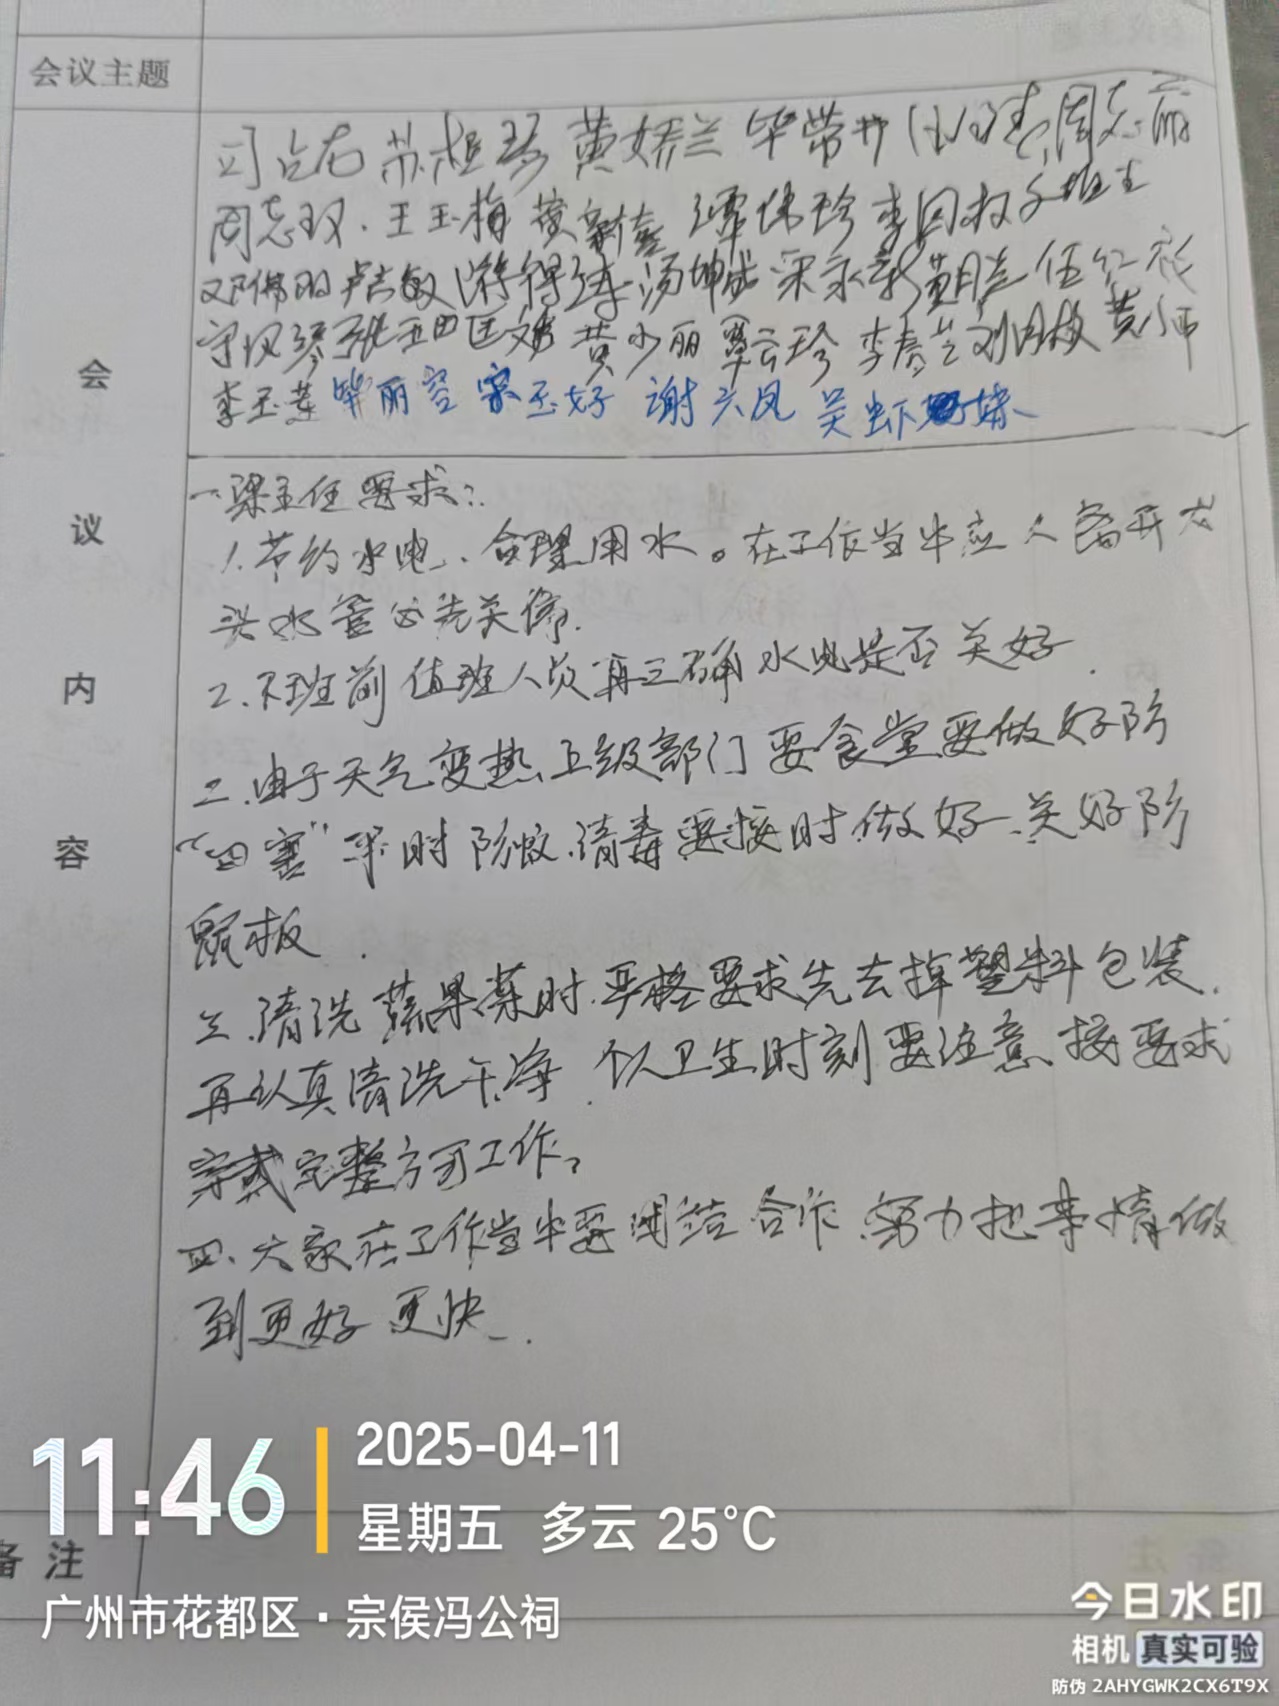 会议主题
黄娇兰 毕带 周志丽
周志 王玉梅 黄 谭伟珍 李
卢 汤坤 黄月兰 伍红
黄少丽 覃云珍 李春兰 刘月 黄小
李玉 毕丽容 宋玉好 谢六凤 吴虾妹
会
议
内
容
一梁主任要求:
1.节约水电、合理用水。在工作当中应人离开水
头水管必先关停.
2.下班前值班人员再三确水电是否关好.
二.由于天气变热、上级部门要食堂要做好防
“四害”平时防蚊、消毒要按时做好、关好防
鼠板.
三.清洗蔬果菜时.严格要求先去掉塑料包装.
再认真清洗干净.个人卫生时刻要注意.按要求
穿戴完整方可工作。
四、大家在工作当中要团结合作.努力把事情做
到更好更快.
备注
11:46
2025-04-11
星期五 多云 25°C
广州市花都区·宗侯冯公祠
今日水印
相机 真实可验
防伪 2AHYGWK2CX6T9X